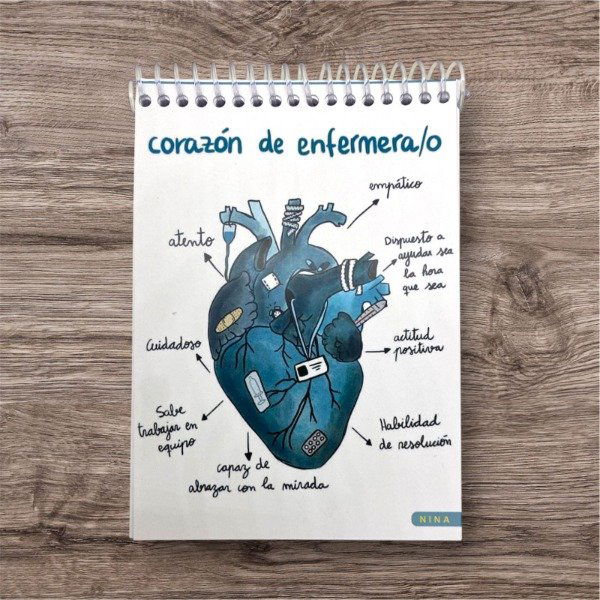 corazón de enfermera/o
empático
atento
Dispuesto a
ayudar sea
la hora
que sea
Cuidadoso
actitud
positiva
Sabe
trabajar en
equipo
Habilidad
de resolución
capaz de
abrazar con la mirada
NINA